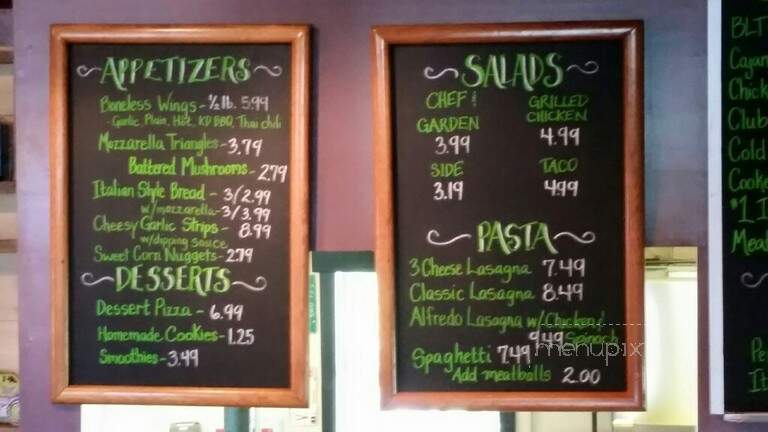 APPETIZERS
Boneless Wings - 1/2 lb. 5.99
- Garlic, Plain, Hot, KD BBQ, Thai chili
Mozzarella Triangles - 3.79
Battered Mushrooms - 2.79
Italian Style Bread - 3/2.99
w/mozzarella - 3/3.99
Cheesy Garlic Strips - 8.99
w/dipping sauce
Sweet Corn Nuggets - 2.79
DESSERTS
Dessert Pizza - 6.99
Homemade Cookies - 1.25
Smoothies - 3.99
SALADS
CHEF
GARDEN
3.99
GRILLED
CHICKEN
4.99
SIDE
3.19
TACO
4.99
PASTA
3 Cheese Lasagna 7.49
Classic Lasagna 8.49
Alfredo Lasagna w/Chicken/
9.49 Spinach
Spaghetti 7.49
Add meatballs 2.00
menupix
BLT
Cajun
Chick
Club
Cold
Cooke
#1 I
Meat
Pe
It